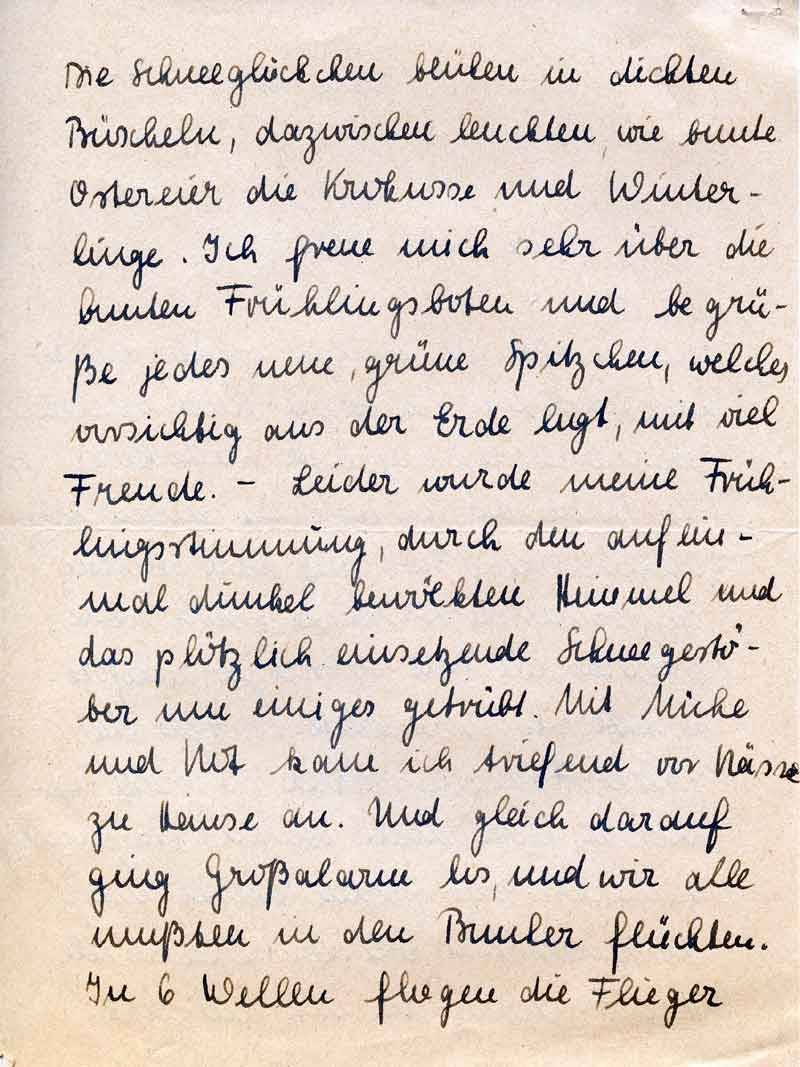 Die Schneeglöckchen blühen in dichten
Büscheln, dazwischen leuchten, wie bunte
Ostereier die Krokusse und Winter-
linge. Ich freue mich sehr über die
bunten Frühlingsboten und begrü-
ße jedes neue, grüne Spitzchen, welches
vorsichtig aus der Erde lugt, mit viel
Freude. - Leider wurde meine Früh-
lingsstimmung, durch den auf ein-
mal dunkel bewölkten Himmel und
das plötzlich einsetzende Schneegestö-
ber um einiges getrübt. Mit Mühe
und Not kam ich triefend vor Nässe
zu Hause an. Und gleich darauf
ging Großalarm los, und wir alle
mußten in den Bunker flüchten.
In 6 Wellen flogen die Flieger